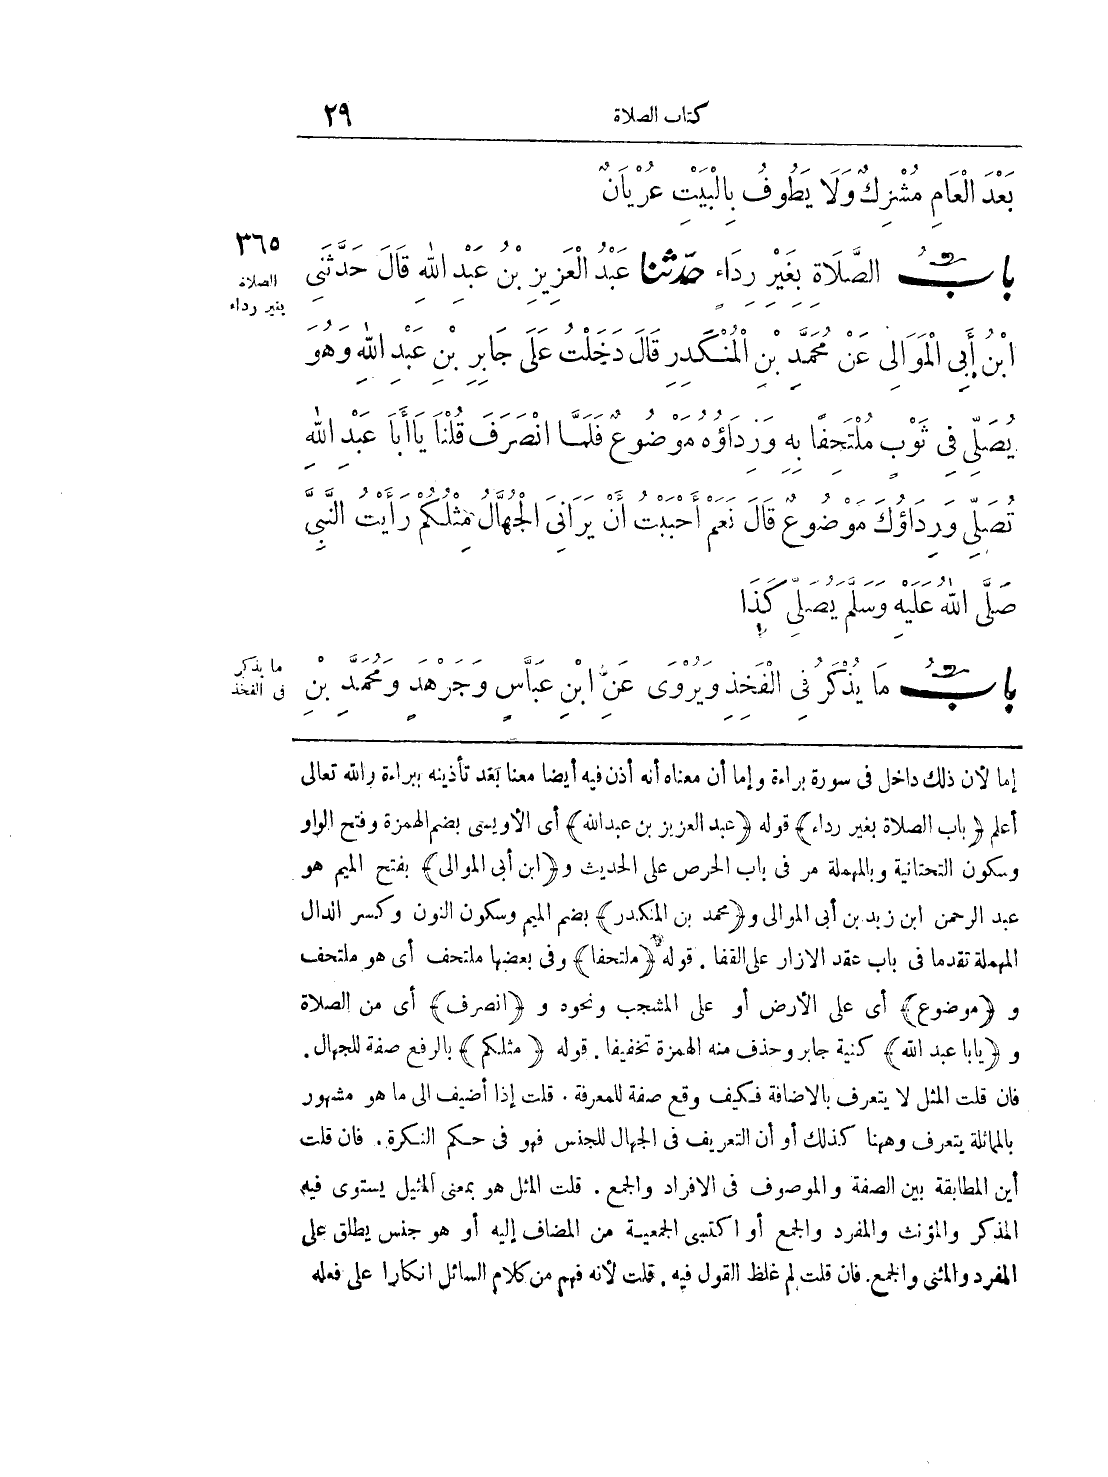 كتاب الصلاة ٢٩
بَعْدَ الْعَامِ مُشْرِكٌ وَلَا يَطُوفُ بِالْبَيْتِ عُرْيَانٌ
٣٦٥
الصلاة
بغير رداء
بابٌ الصَّلَاةِ بِغَيْرِ رِدَاءٍ حَدَّثَنَا عَبْدُ الْعَزِيزِ بْنُ عَبْدِ اللهِ قَالَ حَدَّثَنِي
ابْنُ أَبِي الْمَوَالِى عَنْ مُحَمَّدِ بْنِ الْمُنْكَدِرِ قَالَ دَخَلْتُ عَلَى جَابِرِ بْنِ عَبْدِ اللهِ وَهُوَ
يُصَلِّي فِي ثَوْبٍ مُلْتَحِفًا بِهِ وَرِدَاؤُهُ مَوْضُوعٌ فَلَمَّا انْصَرَفَ قُلْنَا يَا أَبَا عَبْدِ اللهِ
تُصَلِّي وَرِدَاؤُكَ مَوْضُوعٌ قَالَ نَعَمْ أَحْبَبْتُ أَنْ يَرَانِيَ الْجُهَّالُ مِثْلُكُمْ رَأَيْتُ النَّبِيَّ
صَلَّى اللهُ عَلَيْهِ وَسَلَّمَ يُصَلِّي كَذَا
ما يذكر
فى الفخذ
بابٌ مَا يُذْكَرُ فِي الْفَخِذِ وَيُرْوَى عَنِ ابْنِ عَبَّاسٍ وَجَرْهَدٍ وَمُحَمَّدِ بْنِ
إما لأن ذلك داخل فى سورة براءة وإما أن معناه أنه أذن فيه أيضا معنا بَعْد تأذينه ببراءة والله تعالى
أعلم ﴿باب الصلاة بغير رداء﴾ قوله ﴿عبد العزيز بن عبدالله﴾ أى الأويسى بضم الهمزة وفتح الواو
وسكون التحتانية وبالمهملة مر فى باب الحرص على الحديث و﴿ابن أبى الموالى﴾ بفتح الميم هو
عبد الرحمن ابن زيد بن أبى الموالى و﴿محمد بن المنكدر﴾ بضم الميم وسكون النون وكسر الدال
المهملة تقدما فى باب عقد الازار على القفا. قوله ﴿ملتحفا﴾ وفى بعضها ملتحف أى هو ملتحف
و ﴿موضوع﴾ أى على الأرض أو على المشجب ونحوه و ﴿انصرف﴾ أى من الصلاة
و ﴿يابا عبد الله﴾ كنية جابر وحذف منه الهمزة تخفيفا. قوله ﴿مثلكم﴾ بالرفع صفة للجهال.
فان قلت المثل لا يتعرف بالاضافة فكيف وقع صفة للمعرفة. قلت إذا أضيف الى ما هو مشهور
بالمماثلة يتعرف وههنا كذلك أو أن التعريف فى الجهال للجنس فهو فى حكم النكرة. فان قلت
أين المطابقة بين الصفة والموصوف فى الافراد والجمع. قلت المثل هو بمعنى المثيل يستوى فيه
المذكر والمؤنث والمفرد والجمع أو اكتسبى الجمعية من المضاف إليه أو هو جنس يطلق على
المفرد والمثنى والجمع. فان قلت لم غلظ القول فيه. قلت لأنه فهم من كلام السائل انكارا على فعله